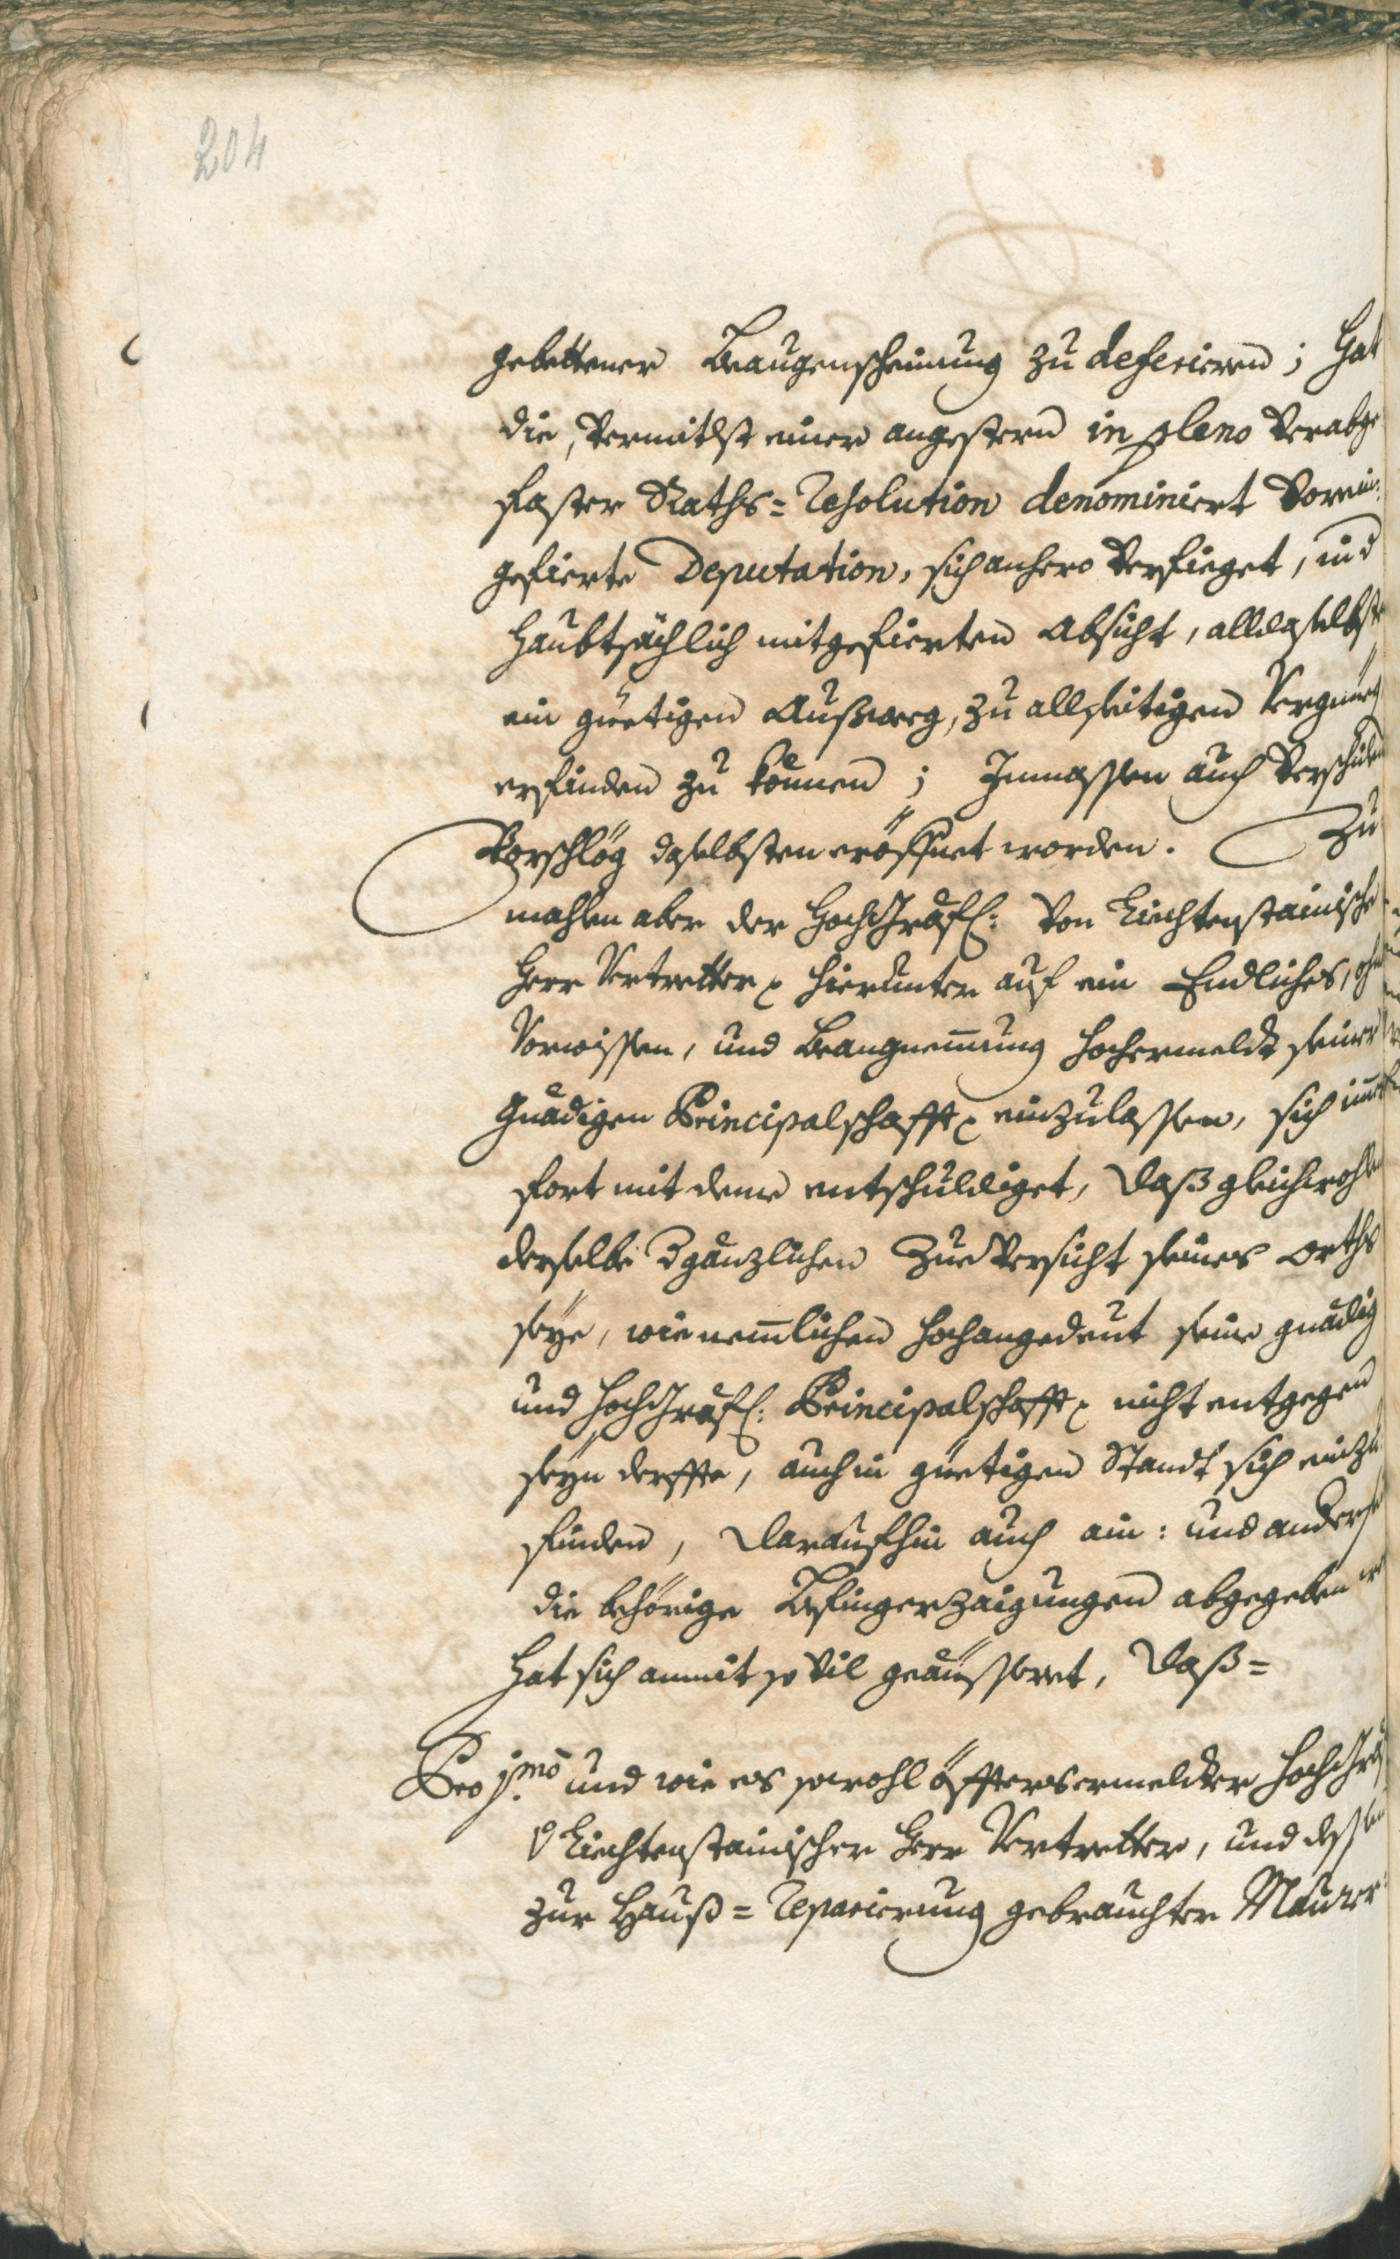 204
gebettener Beaugenscheinung zu deferieren; Hat
die, vermitlst einer angestern in pleno verabge
faster Raths=Resolution denominiert vorein
gefierte Deputation, sich anhero verfieget, in d
haubtsächlich mitgefierten Absicht, alldaselbst
ein güetigen Außweeg, zu allseitigen Vergnüeg
erfinden zu können; Inmassen auch verschiden
Vorschlög daselbsten eröffnet worden. Zu
mahlen aber der Hochgräfl: von Liechtenstainische
Herr Vertretter hierunter auf ein Endliches, ohne
Vorwissen, und Beangnemmung hochermeldt seiner
Gnädigen Principalschafft einzulassen, sich immer
fort mit deme entschuldiget, daß gleichwohlen
derselbe gänzlichen Zueversicht seines Orths
seye, wie nemlichen hochangedeut seine gnädig
und hochgräfl: Principalschafft nicht entgegen
seyn derffte, auch in güetigen Standt sich einzu
finden, daraufhin auch ain: und anderse
die behörige Befingerzaigungen abgegeben
hat sich anmit so vil geäussseret, daß=
Pro 1.mo und wie es sowohl öffters ermeldter hochgrä
v Liechtenstainischer Herr Vertretter, und dessen
zur Hauß=Reparierung gebrauchter Maurer